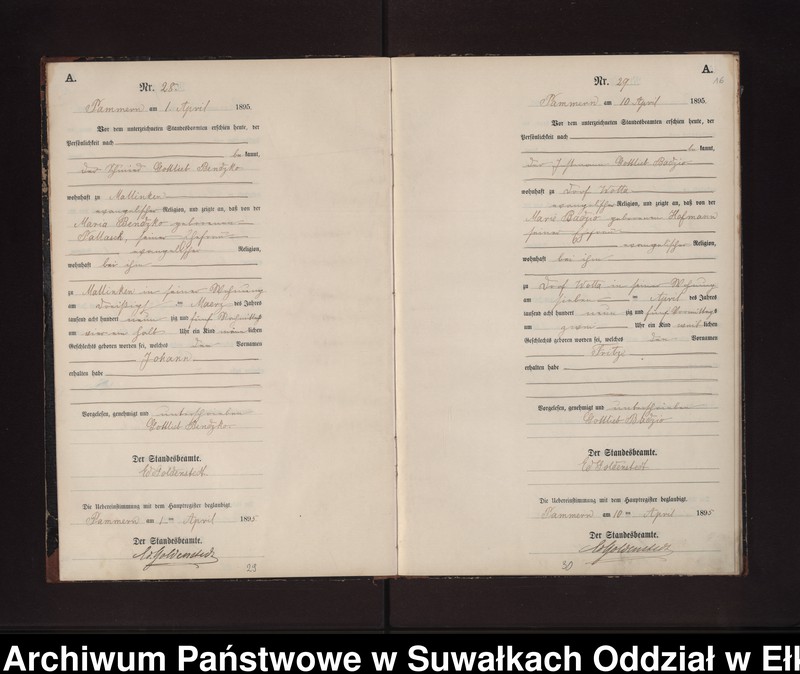 A.
Nr. 28.
am 1. April 1895.
Vor dem unterzeichneten Standesbeamten erschien heute, der
Persönlichkeit nach
be kannt,
der Schmied Gottlieb Bendzko
wohnhaft zu Mallinken
evangelischer Religion, und zeigte an, daß von der
Maria Bendzko geborenen
seiner Ehefrau
evangelischer Religion,
wohnhaft bei ihm
zu Mallinken in seiner Wohnung
am dreißigsten März des Jahres
tausend acht hundert neun zig und fünf
um Uhr ein Kind männ lichen
Geschlechts geboren worden sei, welches den Vornamen
Johann
erhalten habe
Vorgelesen, genehmigt und unterschrieben
Gottlieb Bendzko
Der Standesbeamte.
Die Uebereinstimmung mit dem Hauptregister beglaubigt.
am 1. ten April 1895
Der Standesbeamte.
29
A.
Nr. 29
am 10. April 1895.
Vor dem unterzeichneten Standesbeamten erschien heute, der
Persönlichkeit nach
be kannt,
der Gottlieb Badzio
wohnhaft zu Dorf
evangelischer Religion, und zeigte an, daß von der
Marie Badzio geborenen Hofmann
seiner Ehefrau
evangelischer Religion,
wohnhaft bei ihm
zu Dorf in seiner Wohnung
am sieben ten April des Jahres
tausend acht hundert neun zig und fünf Vormittags
um Uhr ein Kind männ lichen
Geschlechts geboren worden sei, welches den Vornamen
Fritz
erhalten habe
Vorgelesen, genehmigt und unterschrieben
Gottlieb Badzio
Der Standesbeamte.
Die Uebereinstimmung mit dem Hauptregister beglaubigt.
am 10 ten April 1895
Der Standesbeamte.
30
Archiwum Państwowe w Suwałkach Oddział w Ełk